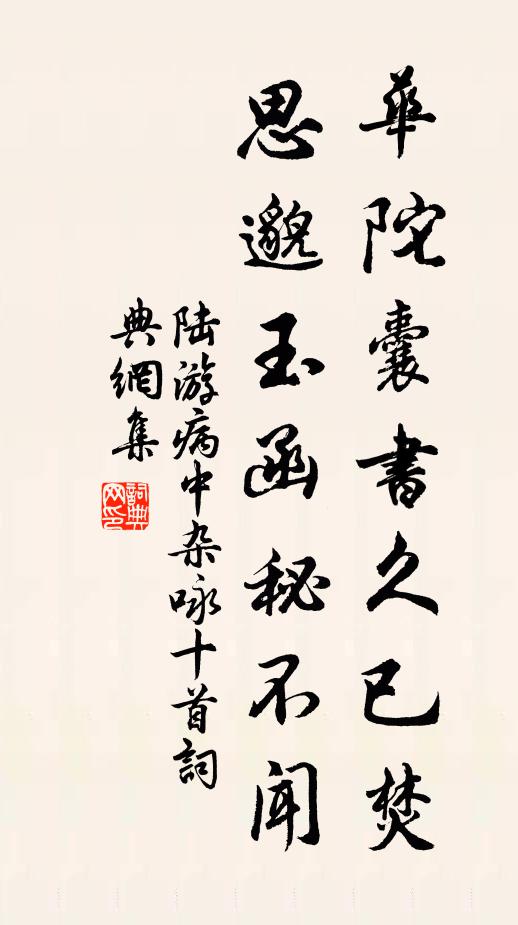 華陀囊書久已焚
思邈玉函秘不聞
陆游病中杂咏十首詞
典網集
詞典
网印